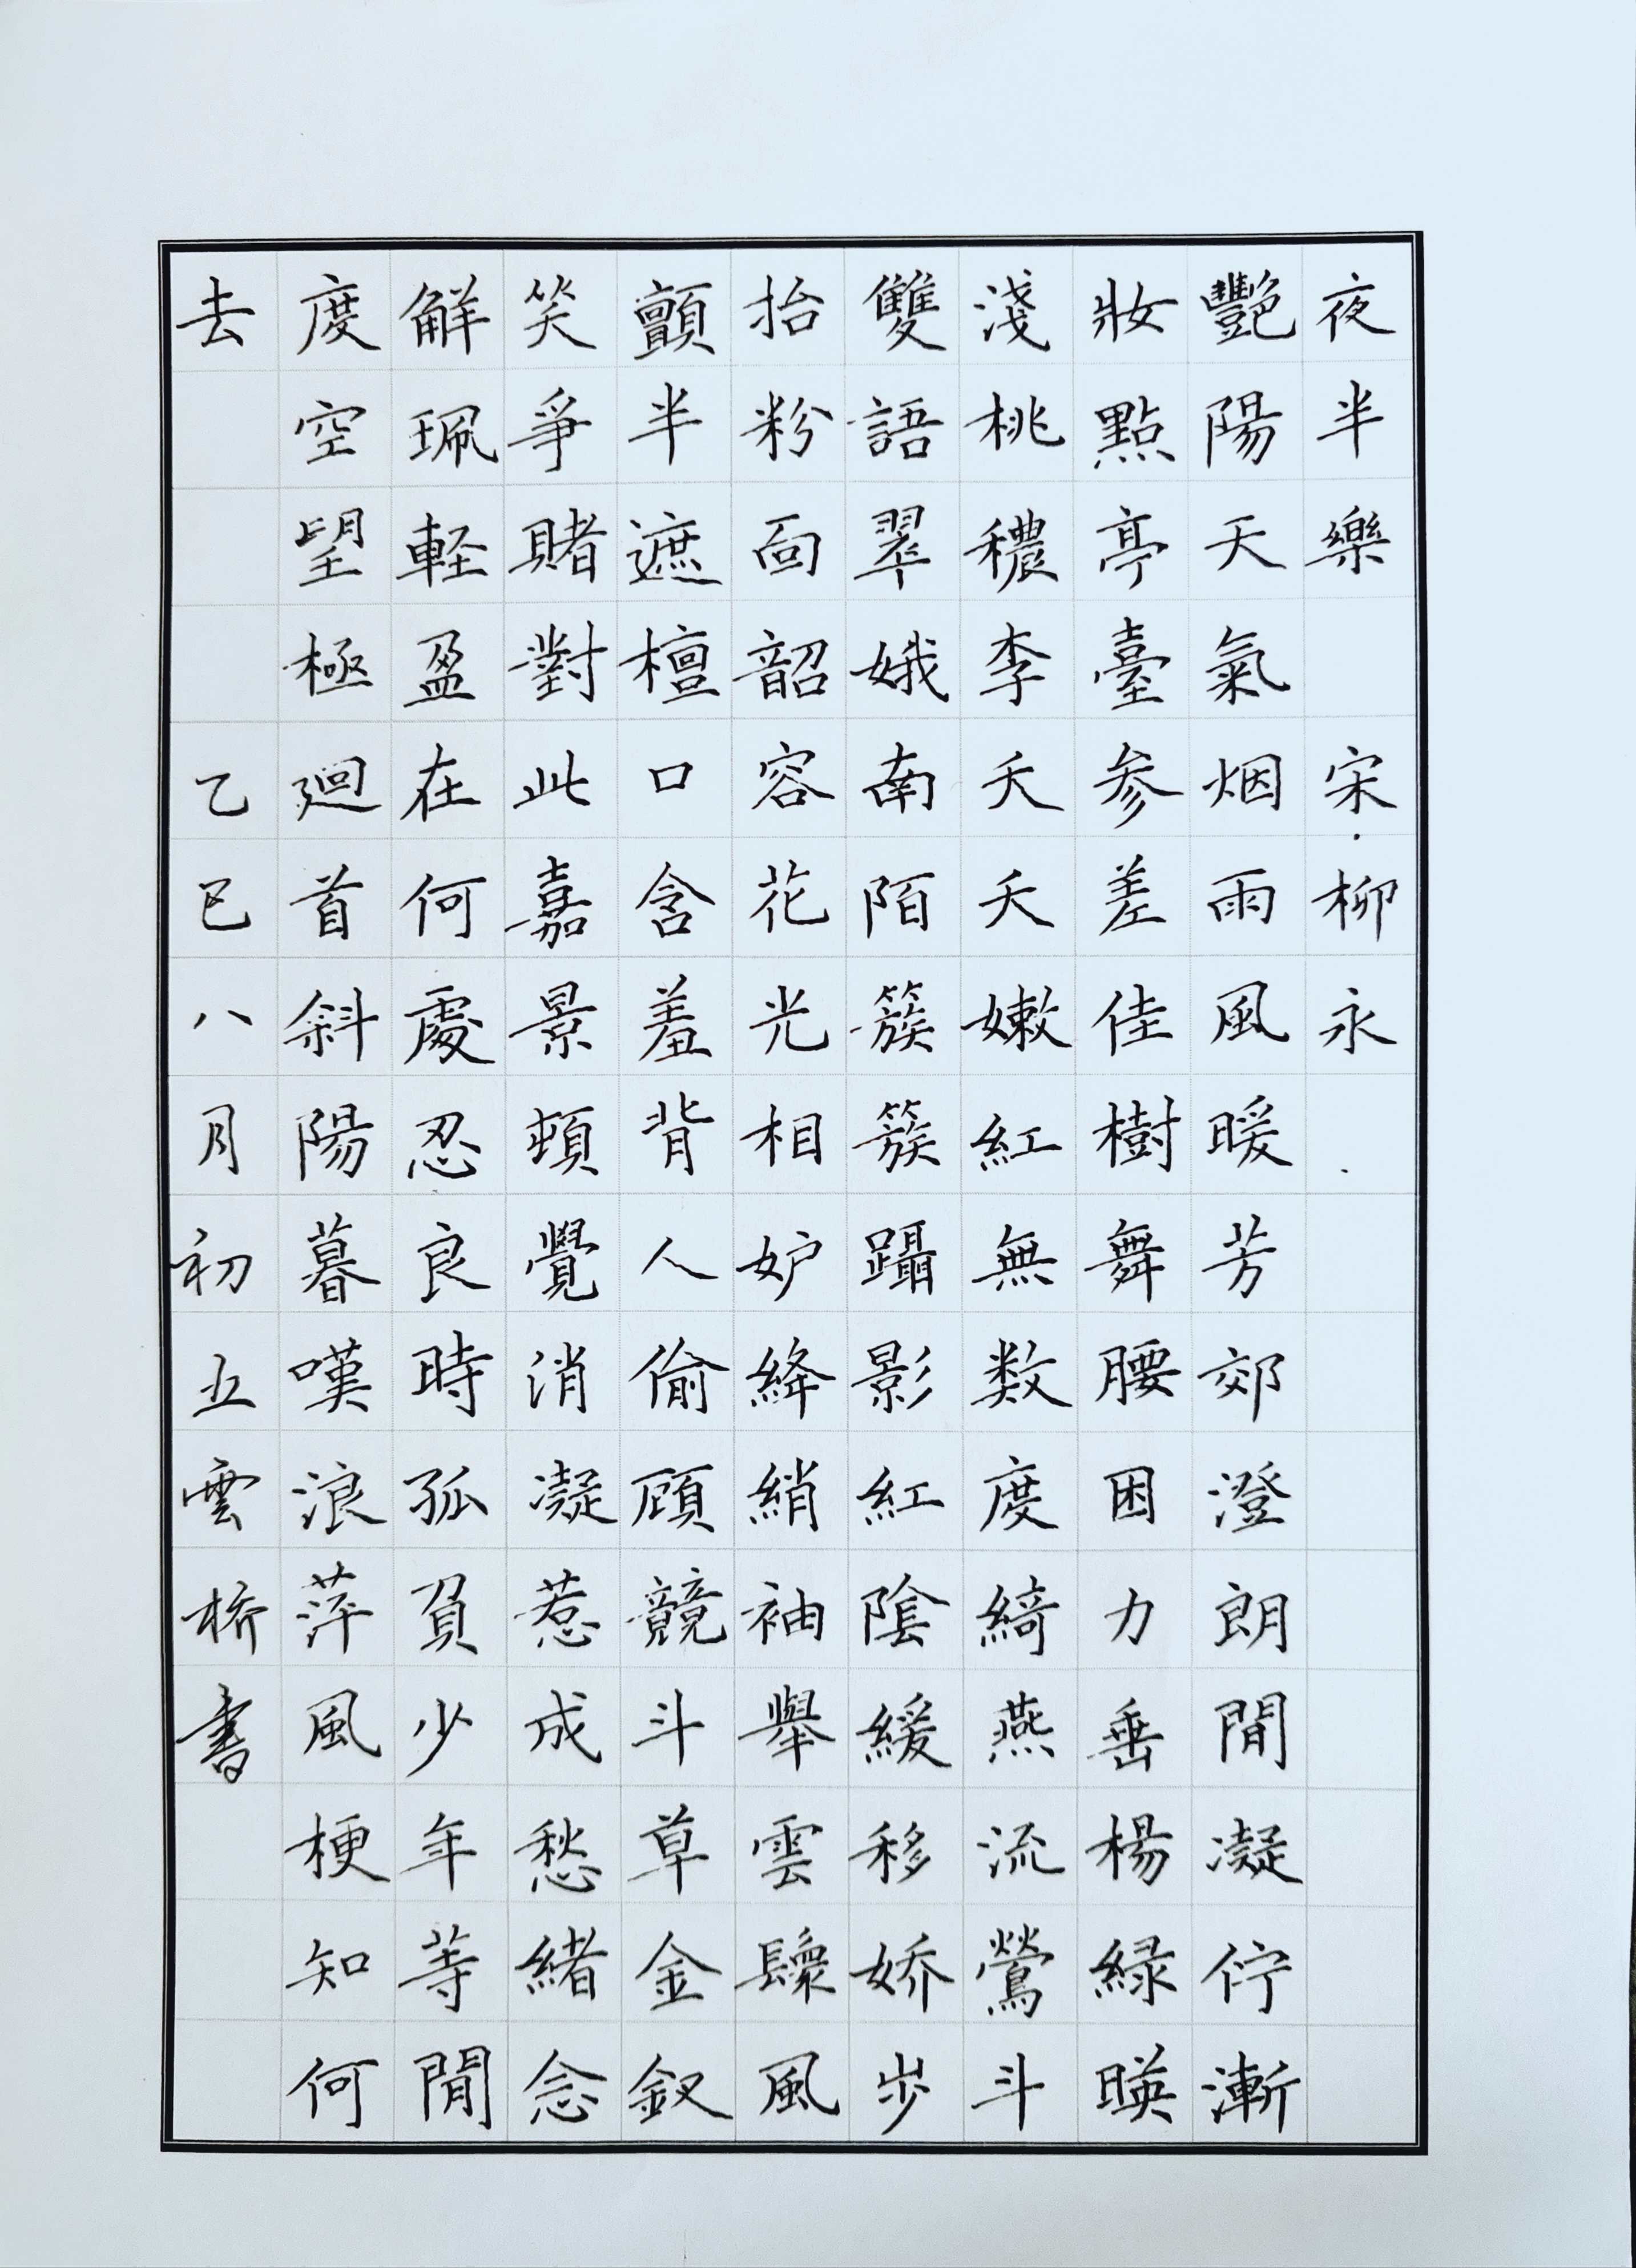 夜半樂 宋·柳永
艷陽天氣烟雨風暖芳郊澄朗閒凝佇漸
妝點亭臺參差佳樹舞腰困力垂楊緑暎
淺桃穠李夭夭嫩紅無数度綺燕流鶯斗
雙語翠娥南陌簇簇躡影紅陰緩移娇步
抬粉面韶容花光相妒絳綃袖舉雲鬟風
顫半遮檀口含羞背人偷顧競斗草金釵
笑爭賭對此嘉景頓覺消凝惹成愁緒念
解珮軽盈在何處忍良時孤負少年等閒
度空望極廻首斜陽暮嘆浪萍風梗知何
去 乙巳八月初五雲桥書